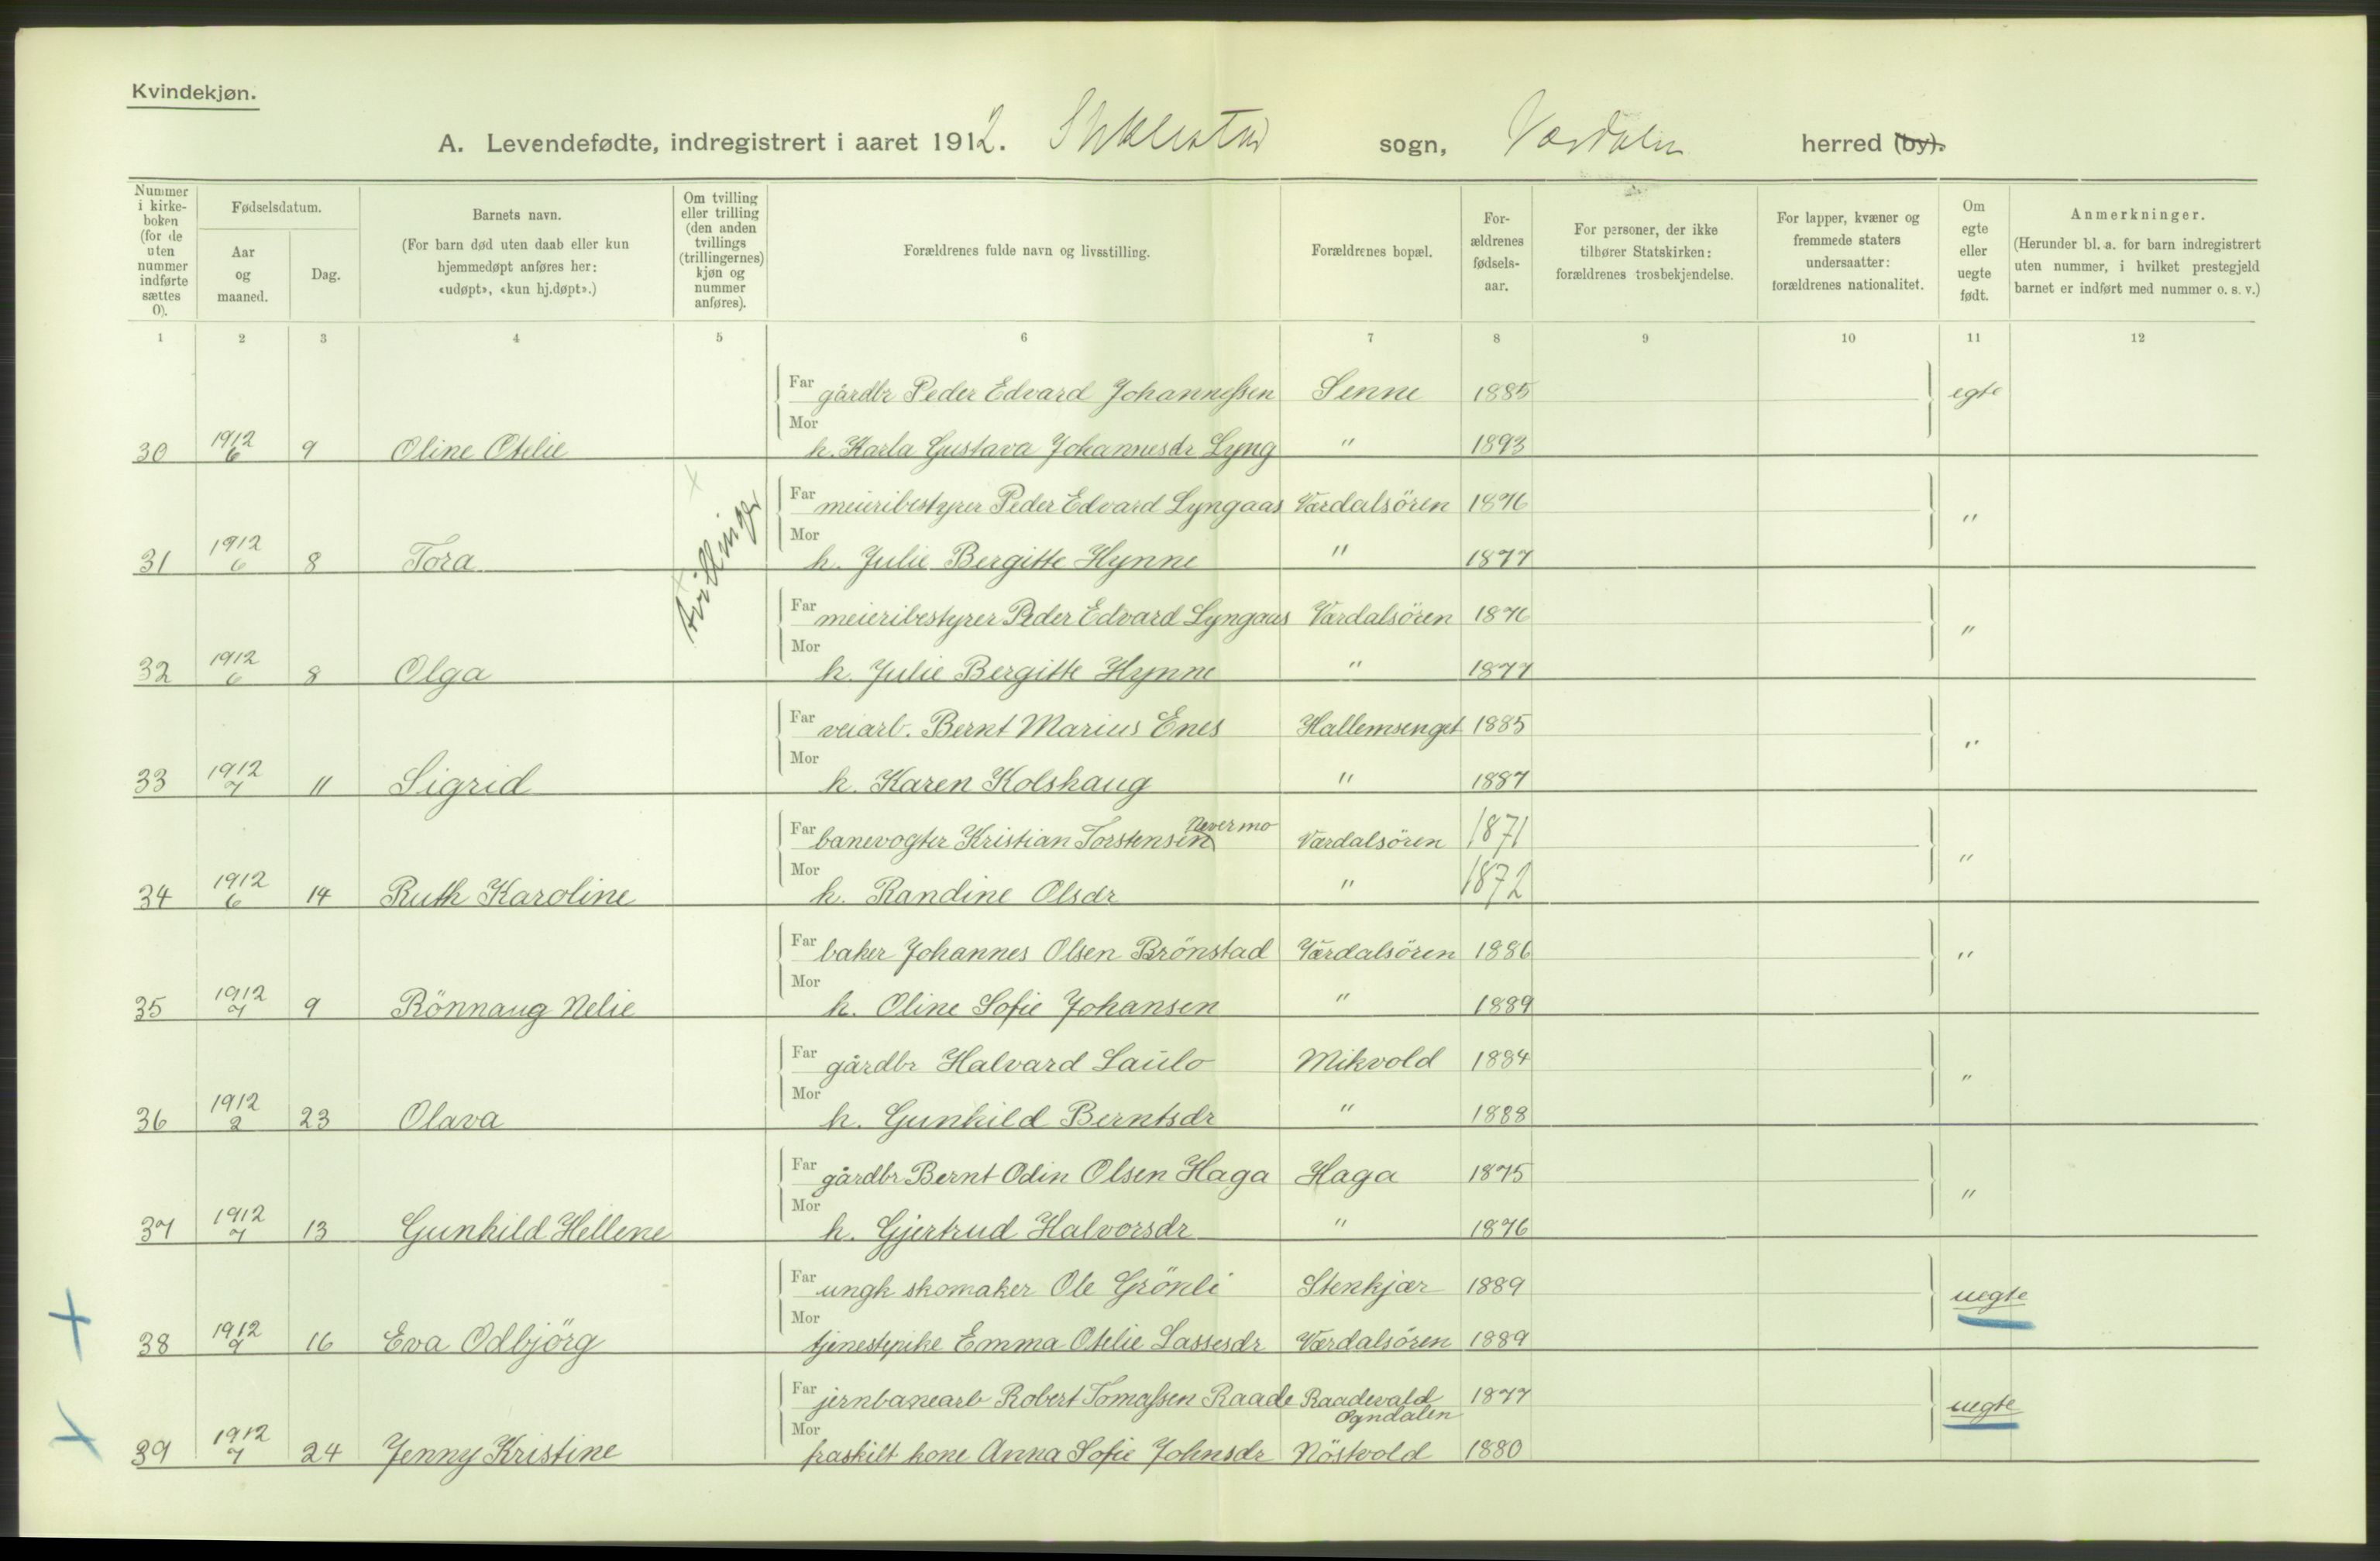 Kvindekjøn.
A. Levendefødte, indregistrert i aaret 1912. Stiklestad sogn, Værdalen herred (by).
Nummer i kirke- boken (for de uten nummer indførte sættes 0).
Fødselsdatum.
Aar og maaned.
Dag.
Barnets navn.
(For barn død uten daab eller kun hjemmedøpt anføres her: «udøpt», «kun hj.døpt».)
Om tvilling eller trilling (den anden tvillings (trillingernes) kjøn og nummer anføres).
Forældrenes fulde navn og livsstilling.
Forældrenes bopæl.
For- ældrenes fødsels- aar.
For personer, der ikke tilhører Statskirken: forældrenes trosbekjendelse.
For lapper, kvæner og fremmede staters undersaatter: forældrenes nationalitet.
Om egte eller uegte født.
Anmerkninger.
(Herunder bl. a. for barn indregistrert uten nummer, i hvilket prestegjeld barnet er indført med nummer o. s. v.)
1 2 3 4 5 6 7 8 9 10 11 12
Far gårdbr Peder Edvard Johannessen Senne 1885 egte
30 1912 6 9 Oline Otelie Mor k. Karla Gustava Johannesdr Lyng " 1893
tvillinger
Far meieribestyrer Peder Edvard Lyngaas Værdalsören 1876 "
31 1912 6 8 Tora Mor k. Julie Bergitte Hynne " 1877
Far meieribestyrer Peder Edvard Lyngaas Værdalsören 1876 "
32 1912 6 8 Olga Mor k. Julie Bergitte Hynne " 1877
Far veiarb. Bernt Marius Enes Hallemsenget 1885 "
33 1912 7 11 Sigrid Mor k. Karen Kolshaug " 1887
Far banevogter Kristian Torstensen Nevermo Værdalsören 1871 "
34 1912 6 14 Ruth Karoline Mor k. Randine Olsdr " 1872
Far baker Johannes Olsen Brönstad Værdalsören 1886 "
35 1912 7 9 Rönnaug Nelie Mor k. Oline Sofie Johansen " 1889
Far gårdbr Halvard Saulo Mikvold 1884 "
36 1912 2 23 Olava Mor k. Gunhild Berntsdr " 1888
Far gårdbr Bernt Odin Olsen Haga Haga 1875 "
37 1912 7 13 Gunhild Hellene Mor k. Gjertrud Halvorsdr " 1876
Far ungk skomaker Ole Grönli Stenkjær 1889 uegte
38 1912 16 Eva Odbjörg Mor tjenestepike Emma Otelie Lassesdr Værdalsören 1889
Far jernbanearb Robert Tomassen Raade Raadevald Ogndalen 1877 uegte
39 1912 7 24 Jenny Kristine Mor fraskilt kone Anna Sofie Johnsdr Nöstvold 1880